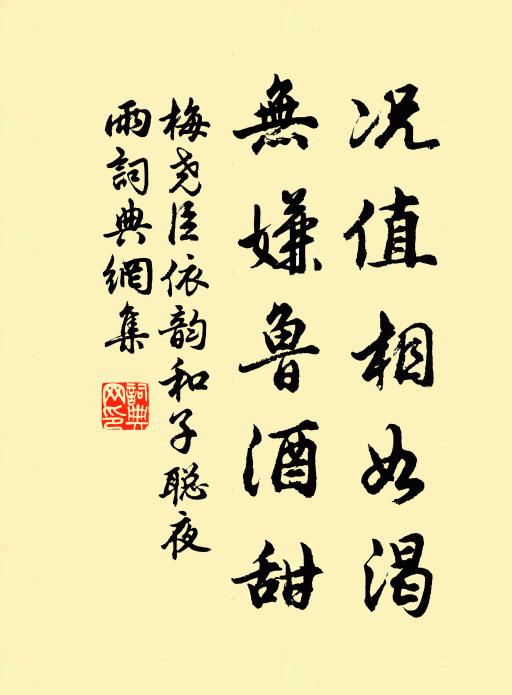 况值相如渴
無嫌魯酒甜
梅尧臣依韵和子聪夜
雨詞典網集
詞典
网印